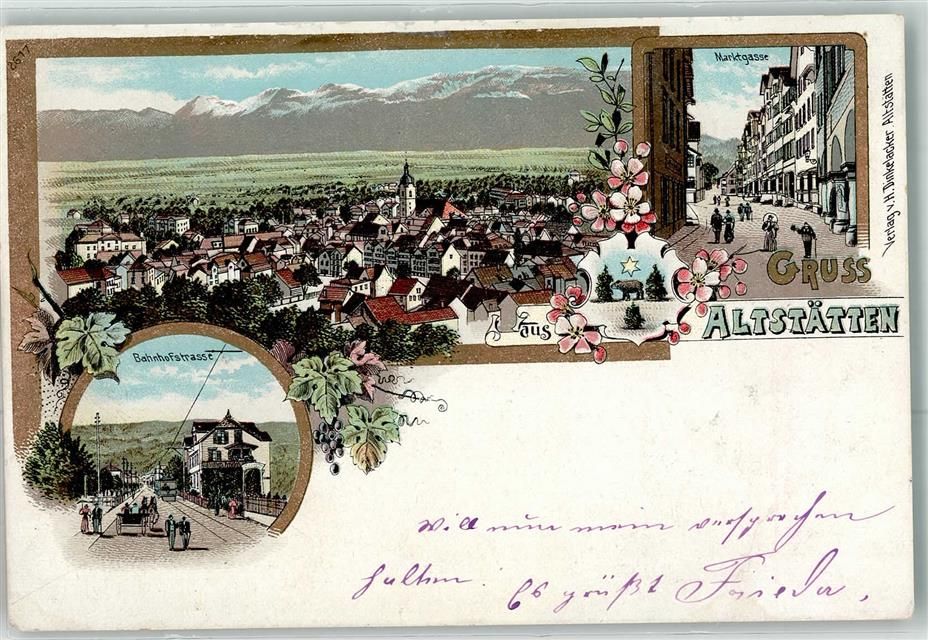 8677
Marktgasse
Verlag v. H. Dinkelacker Altstätten
GRUSS
aus ALTSTÄTTEN
Bahnhofstrasse
Will nun mein versprechen
halten. Es grüßt Frieda.